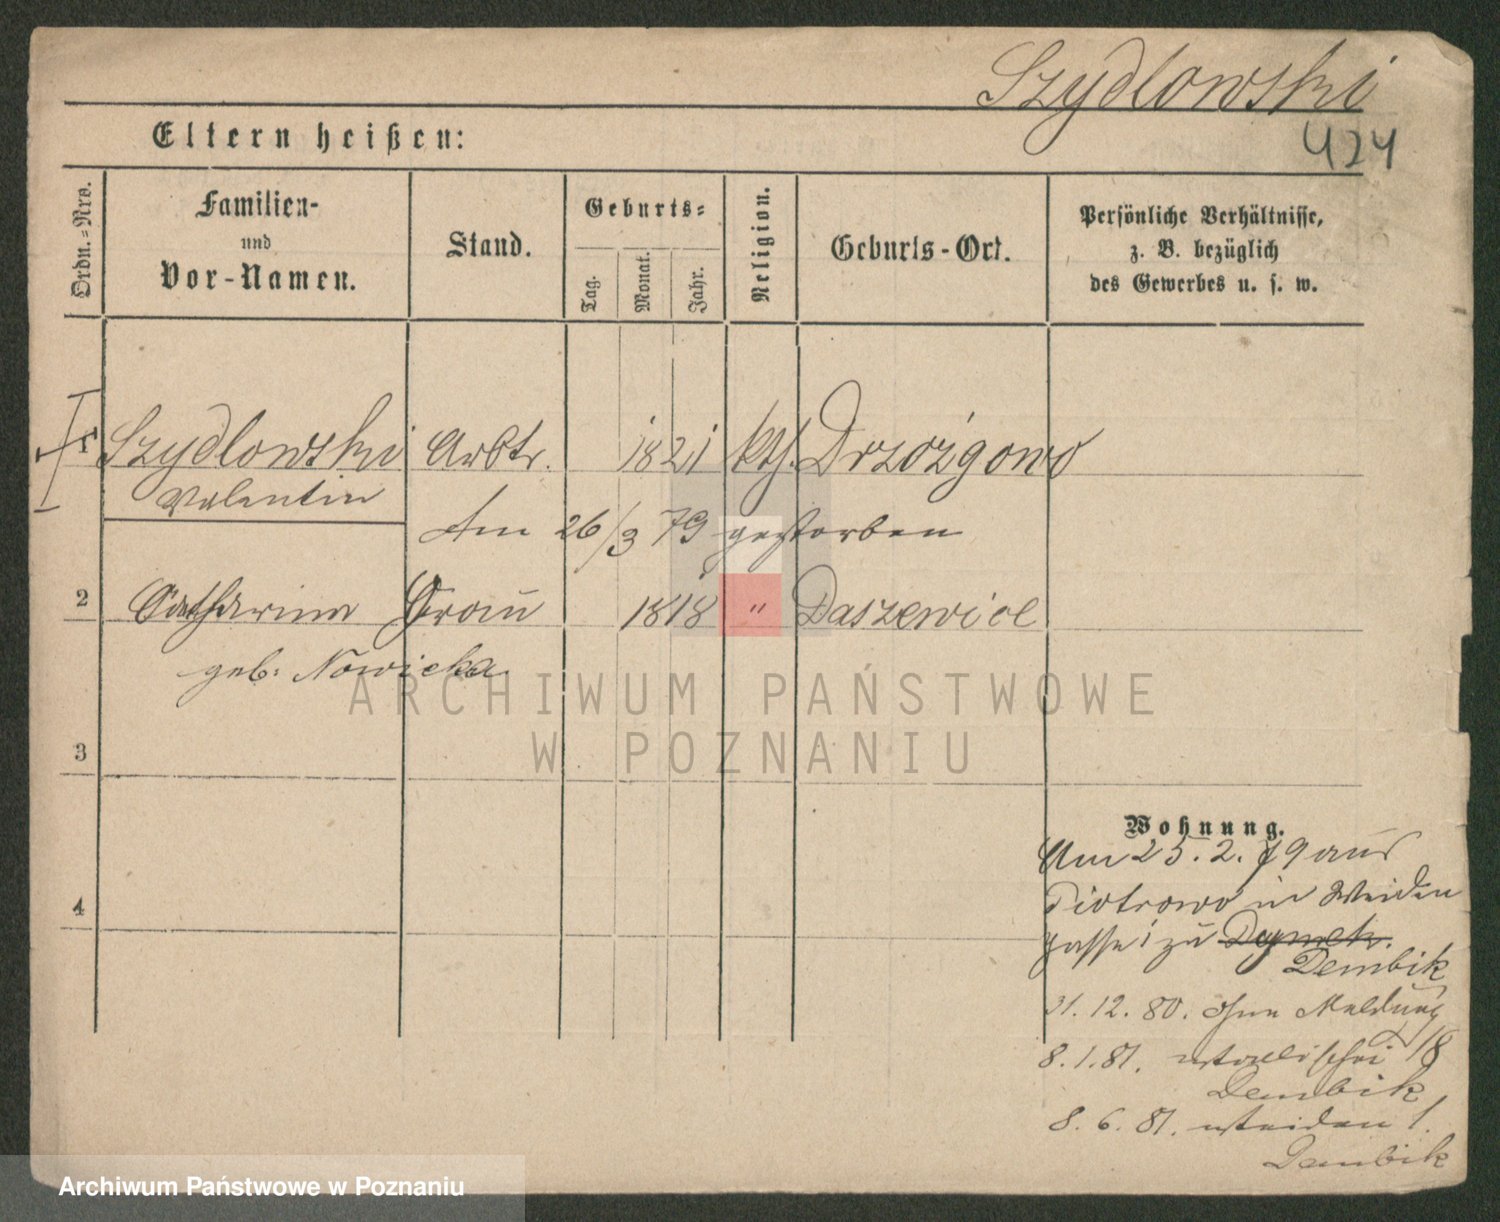 Szydlowski
424
Eltern heißen:
Ordn.=Nro.
Familien-
und
Vor-Namen.
Stand.
Geburts=
Tag.
Monat.
Jahr.
Religion.
Geburts-Ort.
Persönliche Verhältnisse,
z. B. bezüglich
des Gewerbes u. s. w.
Szydlowski Arbtr. 1821 kth. Drzozigowo
Valentin
Am 26/3 79 gestorben
2 Catharina Frau 1818 " Daszewice
geb: Nowicka
3
4
Wohnung.
Am 25. 2. 79 aus
Piotrowo in Weiden
gasse 1 zu Dymek.
Dembik
31. 12. 80. ohne Meldung
8. 1. 81. 18
Dembik
8. 6. 81. Weiden 1.
Dembik
ARCHIWUM PAŃSTWOWE
W POZNANIU
Archiwum Państwowe w Poznaniu